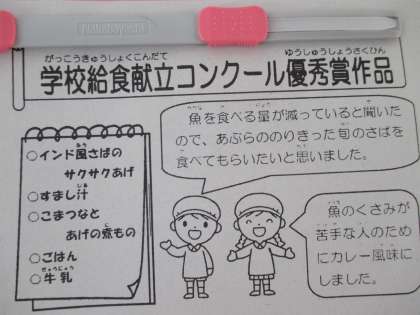 がっこうきゅうしょくこんだて ゆうしゅうしょうさくひん
学校給食献立コンクール優秀賞作品
魚を食べる量が減っていると聞いた
ので、あぶらののりきった旬のさばを
食べてもらいたいと思いました。
○インド風さばの
サクサクあげ
○すまし汁
○こまつなと
あげの煮もの
○ごはん
ぎゅうにゅう
○牛乳
魚のくさみが
苦手な人のため
にカレー風味に
しました。